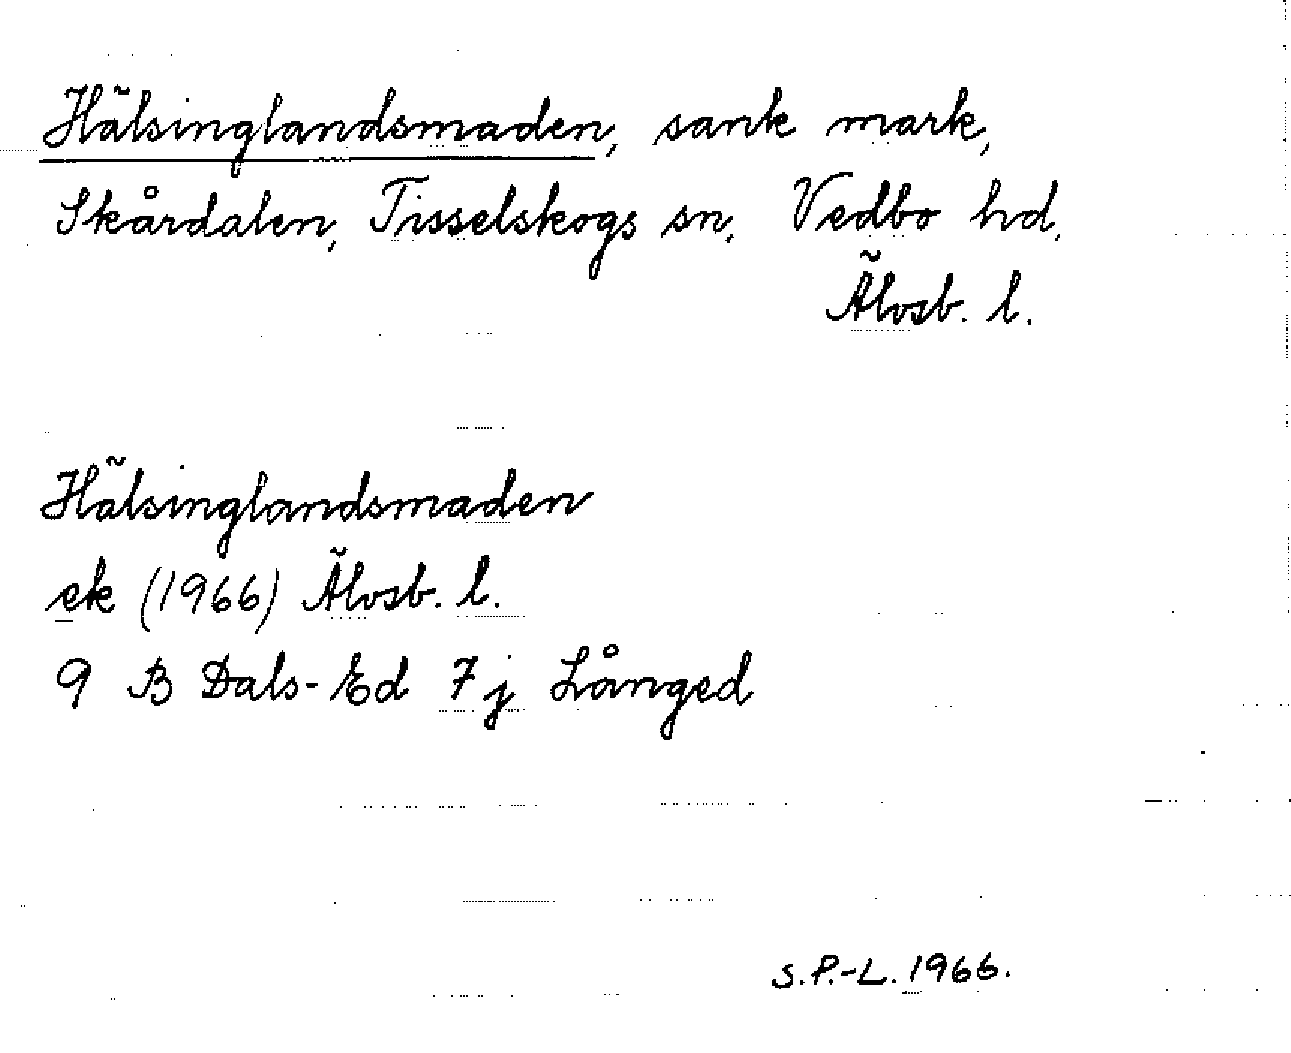 Hälsinglandsmaden, sank mark,
Skårdalen, Tisselskogs sn, Vedbo hd,
Älvsb. l.
Hälsinglandsmaden
ek (1966) Älvsb. l.
9 B Dals-Ed 7j Långed
S.P.-L. 1966.